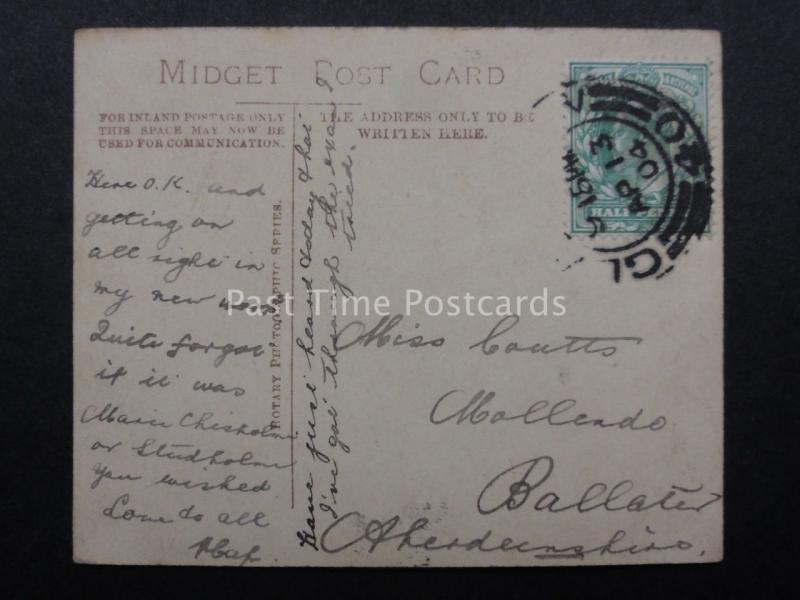 MIDGET POST CARD
FOR INLAND POSTAGE ONLY
THIS SPACE MAY NOW BE
USED FOR COMMUNICATION.
THE ADDRESS ONLY TO BE
WRITTEN HERE.
Here O.K. and
getting on
all right in
my new work
Quite forgot
if it was
Marie Chisholm
or Studholme
you wished
Love to all
ROTARY PHOTOGRAPHIC SERIES.
Have just heard today that
I've got through the exam I
tried.
Miss Coutts
Mollendo
Ballater
Aberdeenshire.
HALF
5 15 PM
AP 13
04
GL
Past Time Postcards